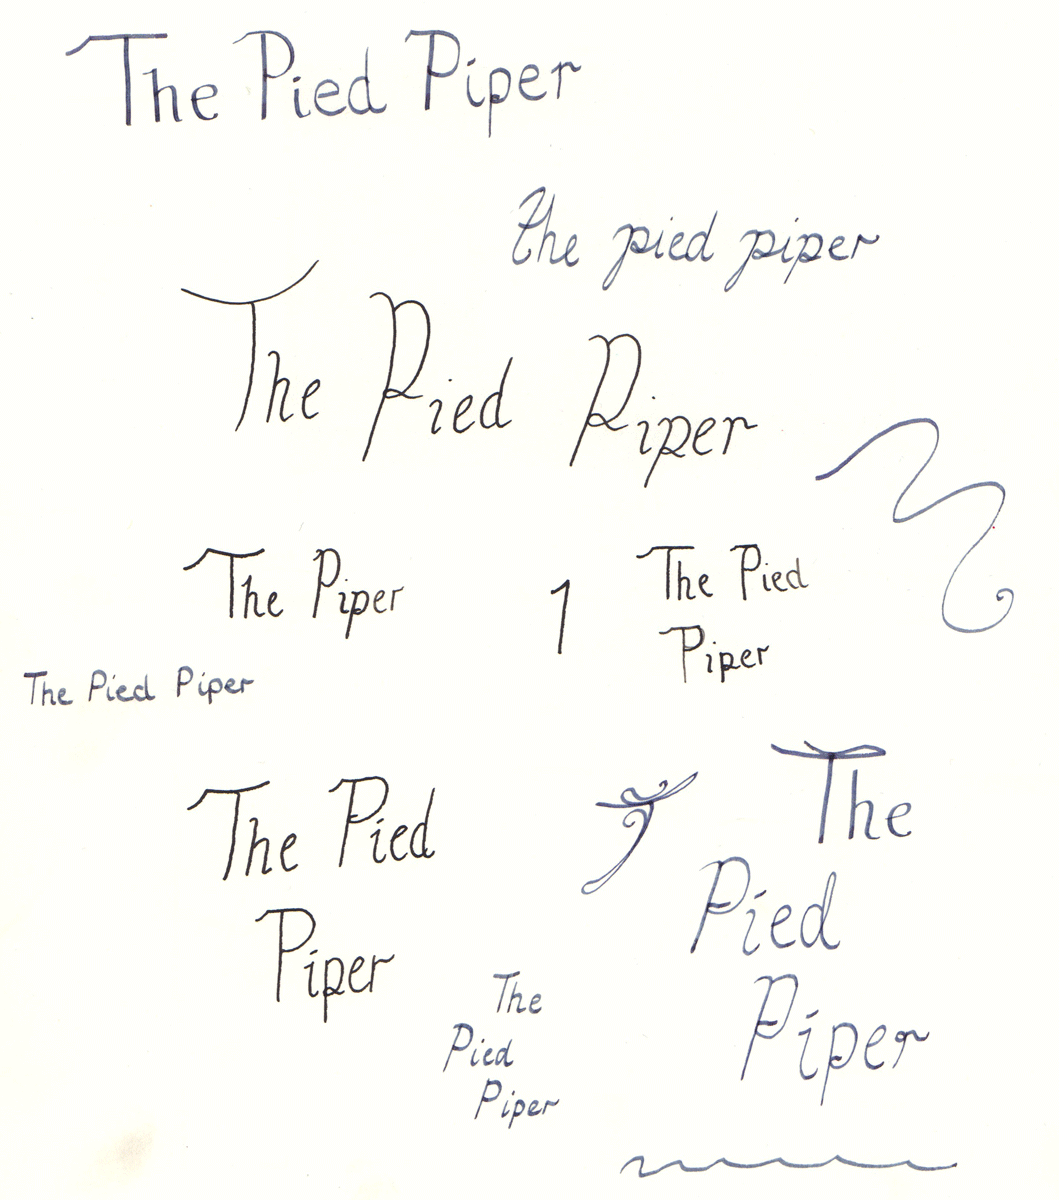 The Pied Piper
the pied piper
The Pied Piper
The Piper
1
The Pied
Piper
The Pied Piper
The Pied
Piper
T
The
Pied
Piper
The
Pied
Piper